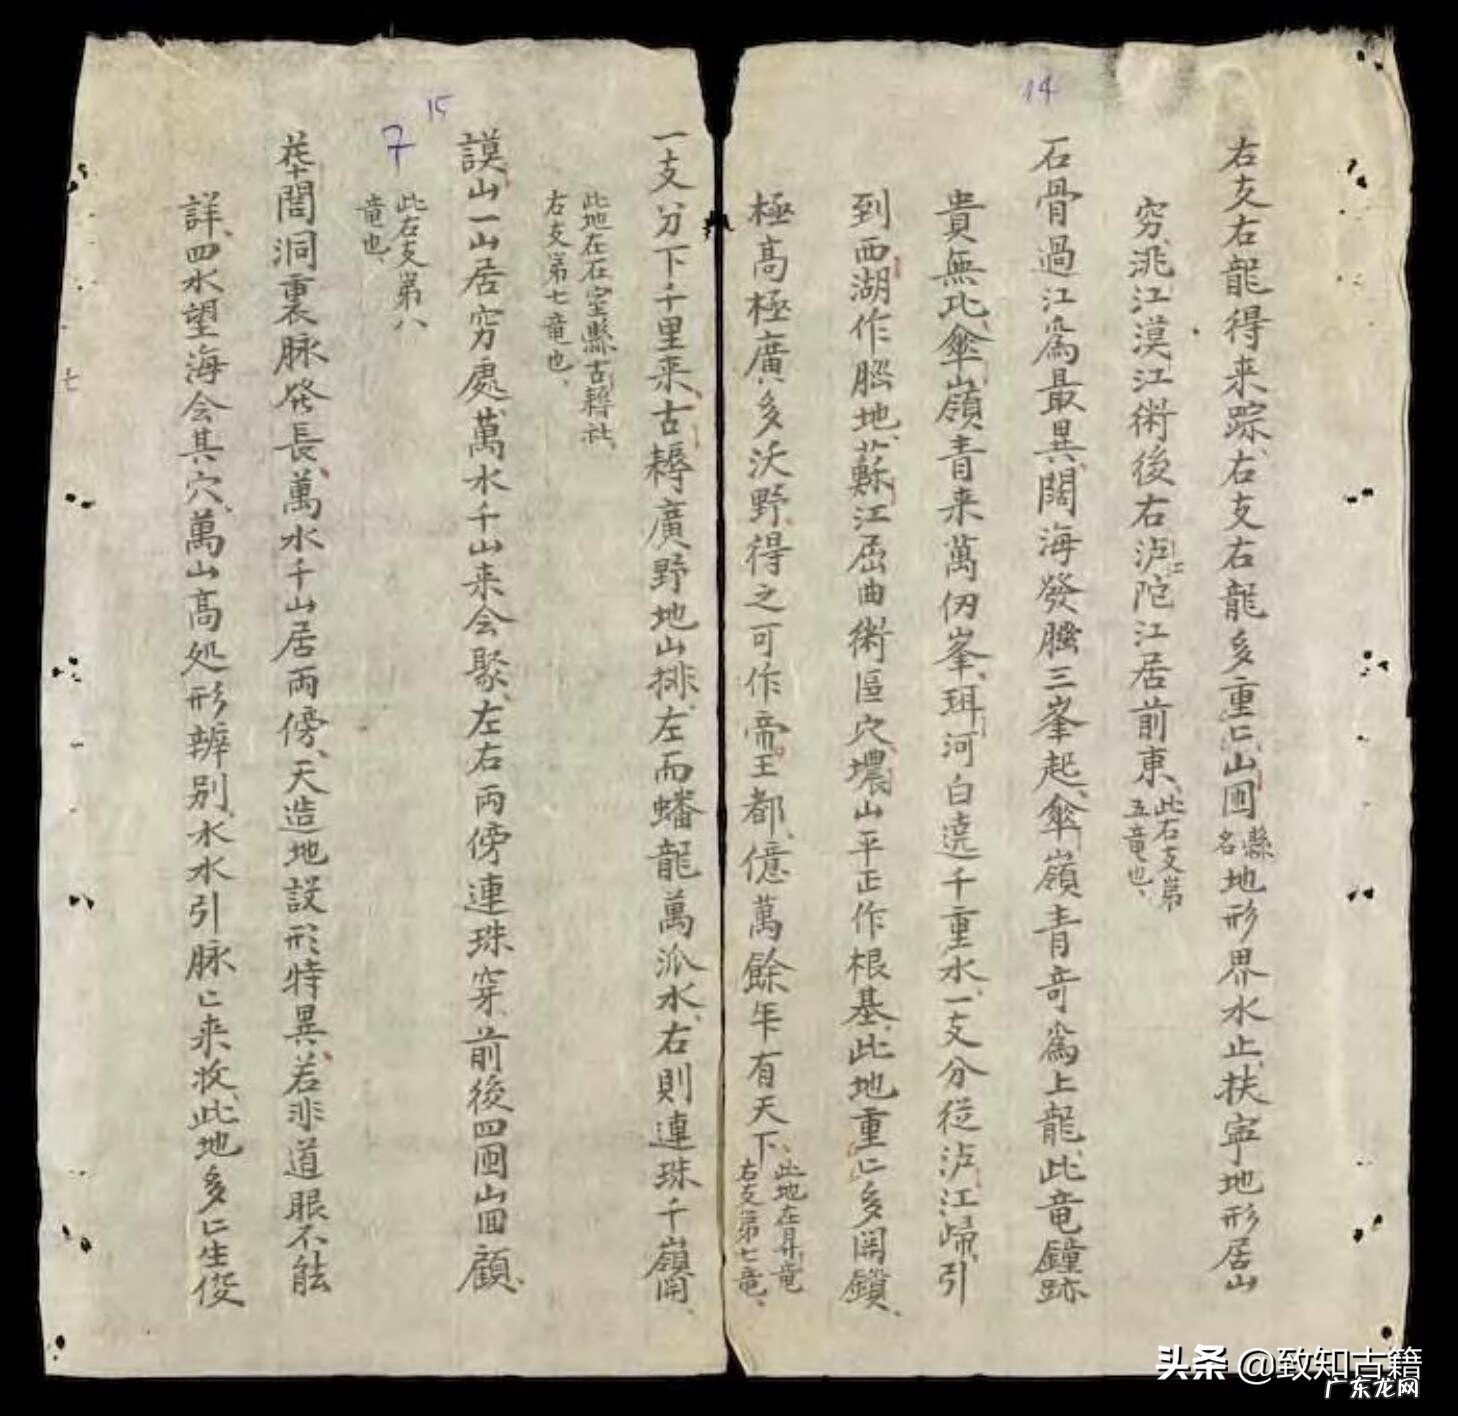 14
右支右龍得来踪右支右龍多重〻山圍縣名地形界水止扶寧地形居山
穷洮江漠江術後右泸江陀江居前東此右支苐五竜也
石骨過江為最異濶海發腦三峯起傘嶺青竒為上龍此竜鐘跡
貴無比傘嶺青来萬仭峯珥河白遶千重水一支分從泸江歸引
到西湖作腦地蘇江屈曲術區穴壠山平正作根基此地重〻多関鎖
極高極廣多沃野得之可作帝王都億萬餘年有天下此地在昇竜右支苐七竜
一支分下千里来古耨廣野地山排左而蟠龍萬派水右則連珠千嶺開
此地在石室縣古耨社右支苐七竜也
15
謨山一山居穷處萬水千山来会聚左右両傍連珠穿前後四囬山回顧
7
此右支苐八竜也
華閭洞裏脉發長萬水千山居両傍天造地設形特異若非道眼不能
詳四水望海会其穴萬山高処形辨别水水引脉〻来收此地多〻生俊
七
头条 @致知古籍
广东龙网